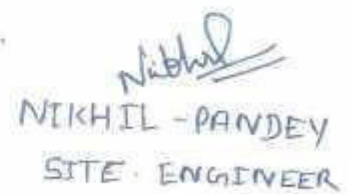 Nikhil
NIKHIL - PANDEY
SITE. ENGINEER